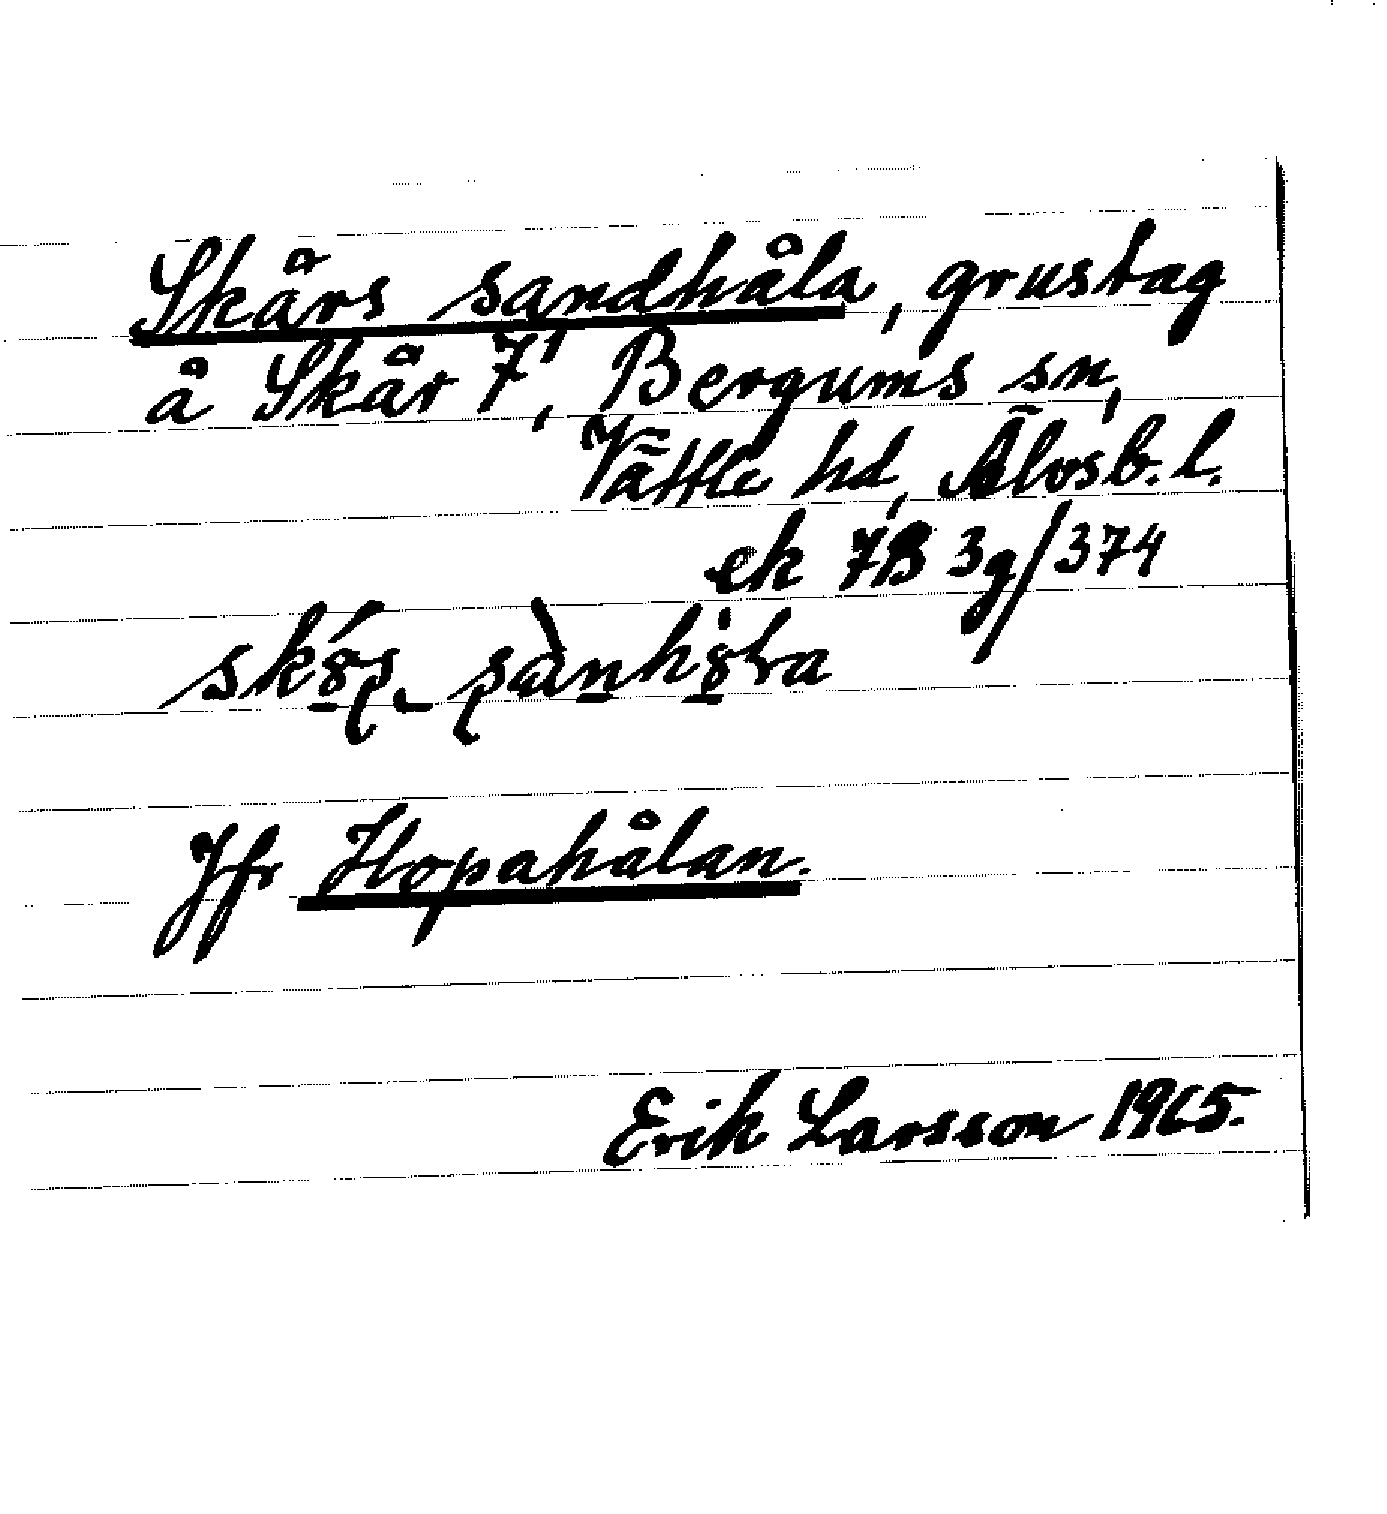 Skårs sandhåla, grustag
å Skår 7¹, Bergums sn,
Vättle hd, Älvsb. l.
ek 7B 3g/374
Jfr Hopahålan.
Erik Larsson 1965.